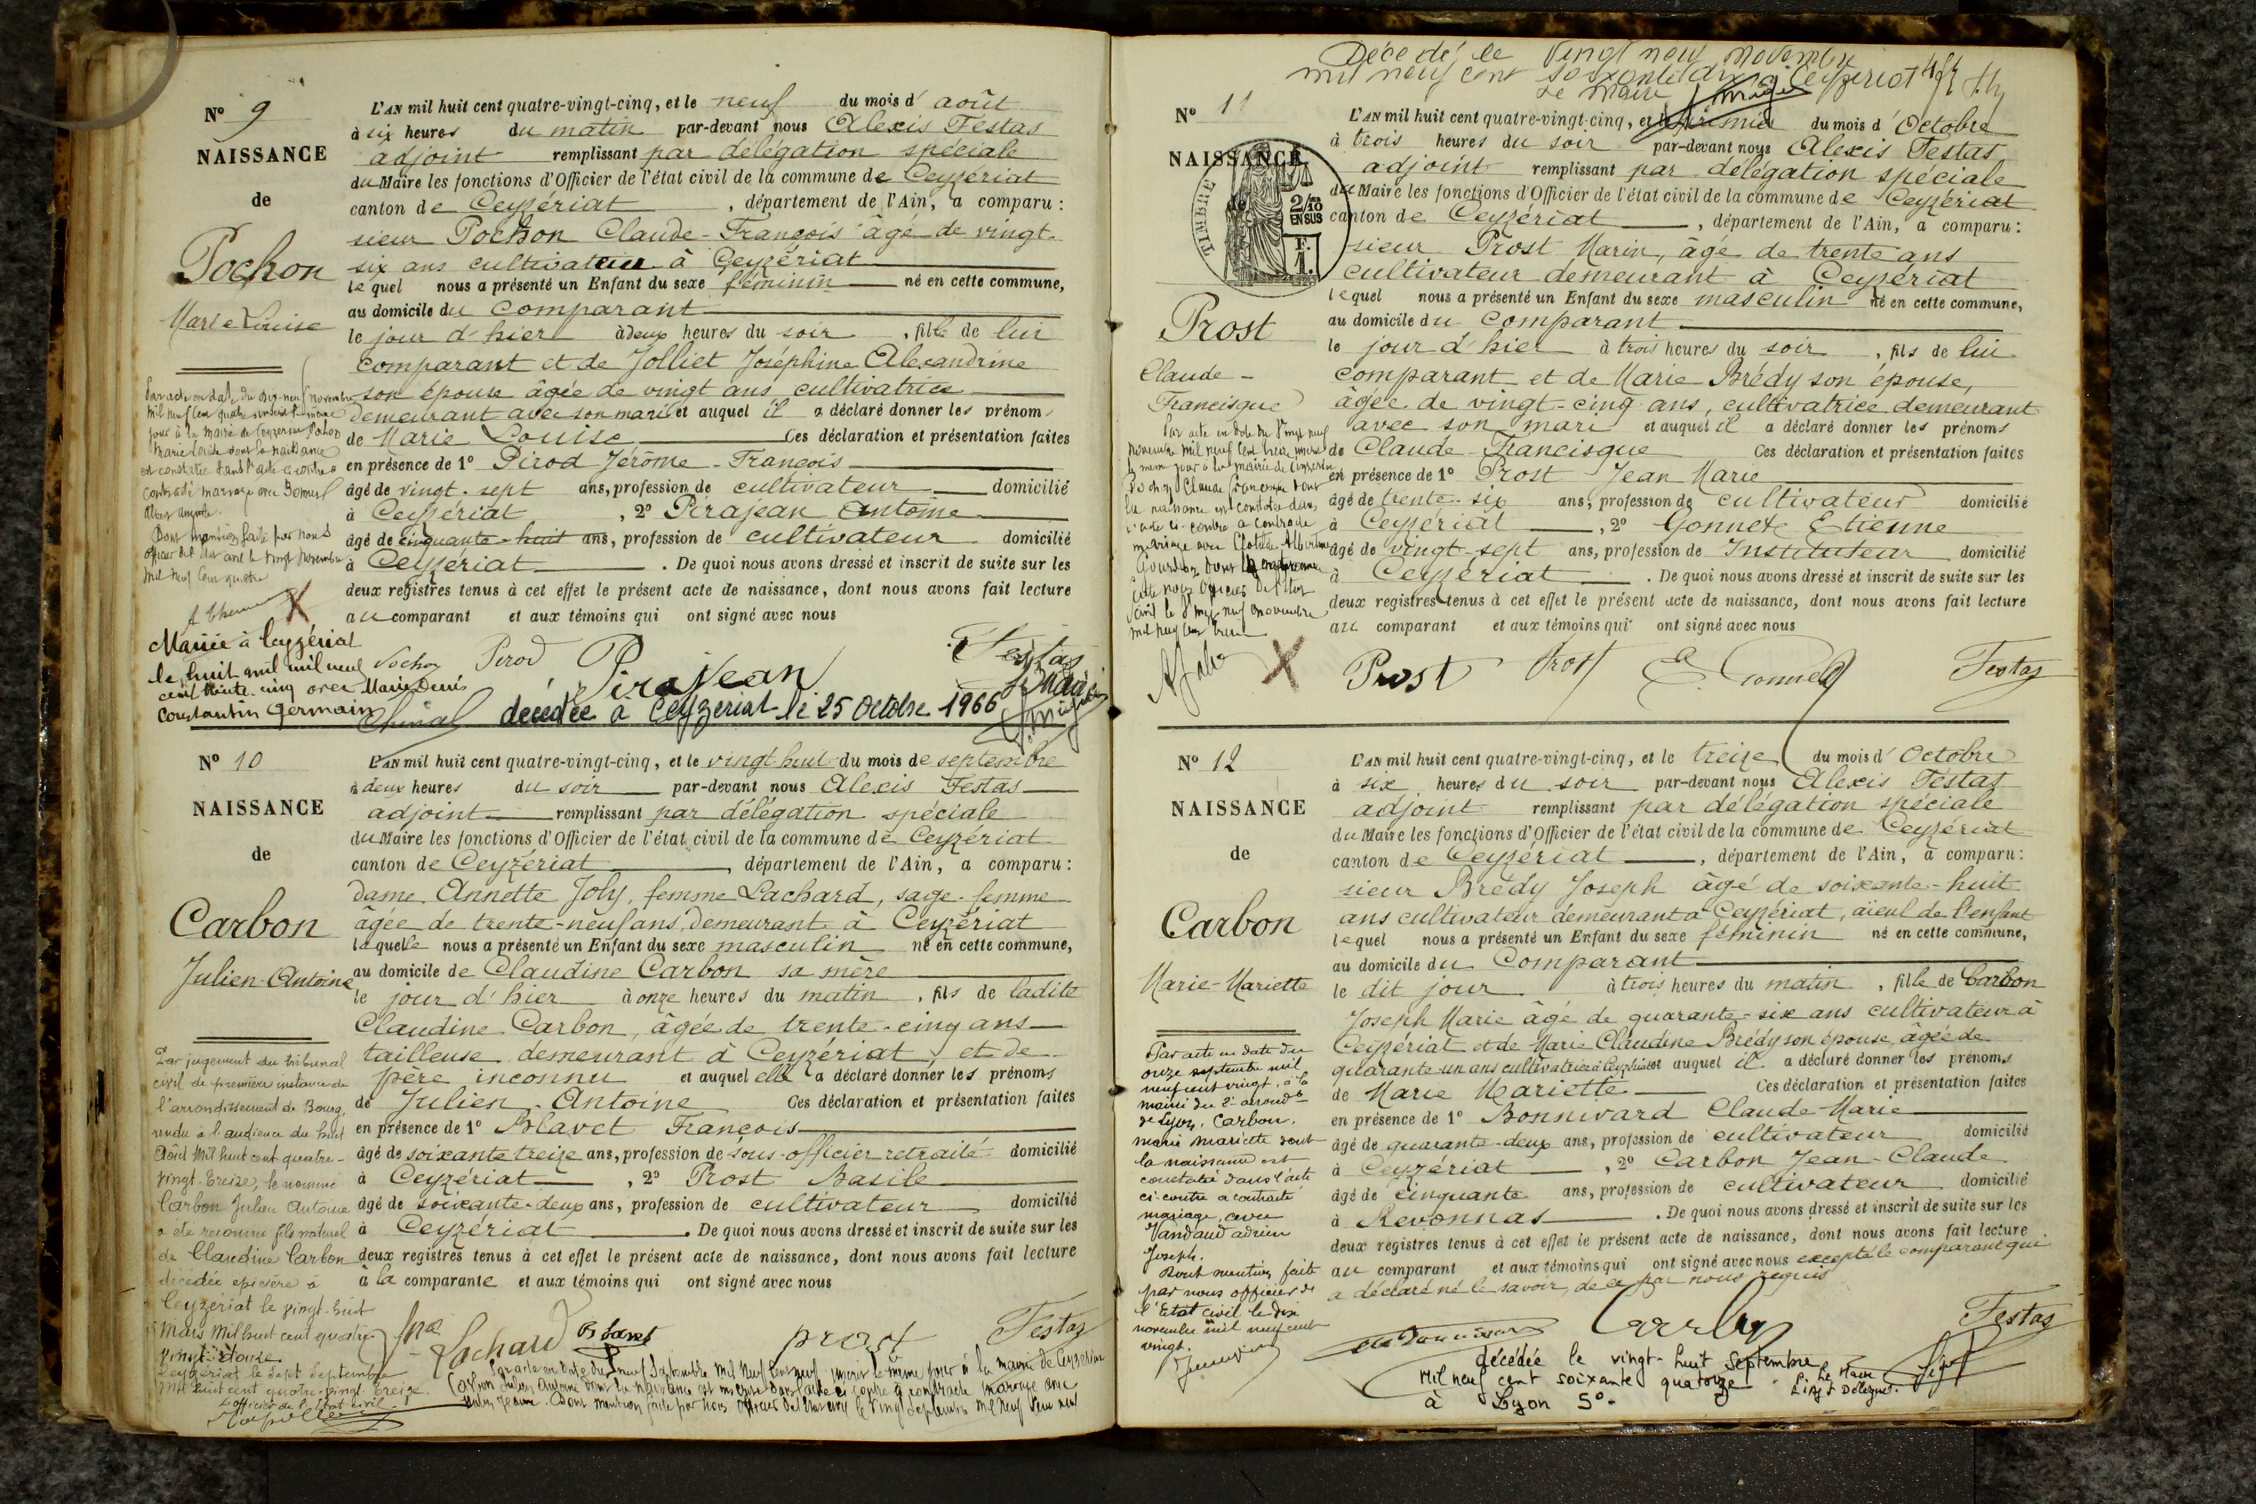 Nº 9
NAISSANCE
de
Pochon
Marie Louise
L'AN mil huit cent quatre-vingt-cinq, et le neuf du mois d'août
à six heures du matin par-devant nous Alexis Festas
adjoint remplissant par délégation spéciale
du Maire les fonctions d'Officier de l'état civil de la commune de Ceyzériat
canton de Ceyzériat, département de l'Ain, a comparu:
sieur Pochon Claude-François âgé de vingt-
six ans cultivateur à Ceyzériat
lequel nous a présenté un Enfant du sexe féminin né en cette commune,
au domicile du comparant
le jour d'hier à deux heures du soir, fille de lui
comparant et de Jolliet Joséphine Alexandrine
son épouse âgée de vingt ans cultivatrice
demeurant avec son mari et auquel il a déclaré donner les prénoms
de Marie Louise Ces déclaration et présentation faites
en présence de 1º Pirod Jérôme-François
âgé de vingt-sept ans, profession de cultivateur domicilié
à Ceyzériat, 2º Pirajean Antoine
âgé de cinquante-huit ans, profession de cultivateur domicilié
à Ceyzériat. De quoi nous avons dressé et inscrit de suite sur les
deux registres tenus à cet effet le présent acte de naissance, dont nous avons fait lecture
au comparant et aux témoins qui ont signé avec nous
Par acte en date du dix-neuf novembre
mil neuf cent quatre inscrit le même
jour à la mairie de Ceyzériat Pochon
Marie Louise dont la naissance
est constatée dans l'acte ci-contre a
contracté mariage avec
Dont mention faite par nous
officier de l'état civil le vingt novembre
mil neuf cent quatre
Mariée à Ceyzériat
le huit avril mil neuf
cent trente-cinq avec Marie Denis
Constantin Germain
Pochon Pirod Pirajean Festas
décédée à Ceyzériat le 25 Octobre 1966
Le Maire
Nº 10
NAISSANCE
de
Carbon
Julien-Antoine
L'AN mil huit cent quatre-vingt-cinq, et le vingt huit du mois de septembre
à deux heures du soir par-devant nous Alexis Festas
adjoint remplissant par délégation spéciale
du Maire les fonctions d'Officier de l'état civil de la commune de Ceyzériat
canton de Ceyzériat, département de l'Ain, a comparu:
dame Annette Joly, femme Lachard, sage-femme
âgée de trente-neuf ans demeurant à Ceyzériat
laquelle nous a présenté un Enfant du sexe masculin né en cette commune,
au domicile de Claudine Carbon sa mère
le jour d'hier à onze heures du matin, fils de ladite
Claudine Carbon, âgée de trente-cinq ans
tailleuse demeurant à Ceyzériat et de
père inconnu et auquel elle a déclaré donner les prénoms
de Julien-Antoine Ces déclaration et présentation faites
en présence de 1º Blavet François
âgé de soixante treize ans, profession de sous-officier retraité domicilié
à Ceyzériat, 2º Prost Basile
âgé de soixante-deux ans, profession de cultivateur domicilié
à Ceyzériat. De quoi nous avons dressé et inscrit de suite sur les
deux registres tenus à cet effet le présent acte de naissance, dont nous avons fait lecture
à la comparante et aux témoins qui ont signé avec nous
Par jugement du tribunal
civil de première instance de
l'arrondissement de Bourg,
rendu à l'audience du huit
Août mil huit cent quatre-
vingt-treize, le nommé
Carbon Julien Antoine
a été reconnu fils naturel
de Claudine Carbon
décédée épicière à
Ceyzériat le vingt-huit
Mars mil huit cent quatre-
vingt-douze.
Ceyzériat le sept septembre
mil huit cent quatre-vingt-treize.
L'officier de l'Etat civil
Lachard Blavet prost Festas
Par acte en date du neuf Septembre mil neuf cent neuf inscrit le même jour à la mairie de Ceyzériat
Carbon Julien Antoine dont la naissance est inscrite dans l'acte ci-contre a contracté mariage avec
Dont mention faite par nous officier de l'état civil le vingt septembre mil neuf cent neuf
Décédé le vingt neuf novembre
mil neuf cent soixante dix à Ceyzériat
Le Maire
Nº 11
NAISSANCE
de
TIMBRE
2/10
EN SUS
F.
1.
Prost
Claude-
Francisque
L'AN mil huit cent quatre-vingt-cinq, et le premier du mois d'Octobre
à trois heures du soir par-devant nous Alexis Festas
adjoint remplissant par délégation spéciale
du Maire les fonctions d'Officier de l'état civil de la commune de Ceyzériat
canton de Ceyzériat, département de l'Ain, a comparu:
sieur Prost Marin, âgé de trente ans
cultivateur demeurant à Ceyzériat
lequel nous a présenté un Enfant du sexe masculin né en cette commune,
au domicile du comparant
le jour d'hier à trois heures du soir, fils de lui
comparant et de Marie Brédy son épouse,
âgée de vingt-cinq ans, cultivatrice demeurant
avec son mari et auquel il a déclaré donner les prénoms
de Claude Francisque Ces déclaration et présentation faites
en présence de 1º Prost Jean Marie
âgé de trente-six ans, profession de cultivateur domicilié
à Ceyzériat, 2º Gonnet Etienne
âgé de vingt-sept ans, profession de Instituteur domicilié
à Ceyzériat. De quoi nous avons dressé et inscrit de suite sur les
deux registres tenus à cet effet le présent acte de naissance, dont nous avons fait lecture
au comparant et aux témoins qui ont signé avec nous
Par acte en date du vingt neuf
novembre mil neuf cent treize inscrit
le même jour à la mairie de Ceyzériat
Claude Francisque dont
la naissance est constatée dans
l'acte ci-contre a contracté
mariage avec
officier de l'état
civil le vingt neuf novembre
mil neuf cent treize
Prost Prost E. Gonnet Festas
Nº 12
NAISSANCE
de
Carbon
Marie-Mariette
L'AN mil huit cent quatre-vingt-cinq, et le treize du mois d'Octobre
à six heures du soir par-devant nous Alexis Festas
adjoint remplissant par délégation spéciale
du Maire les fonctions d'Officier de l'état civil de la commune de Ceyzériat
canton de Ceyzériat, département de l'Ain, a comparu:
sieur Brédy Joseph âgé de soixante-huit
ans cultivateur demeurant à Ceyzériat, aïeul de l'enfant
lequel nous a présenté un Enfant du sexe féminin né en cette commune,
au domicile du Comparant
le dit jour à trois heures du matin, fille de Carbon
Joseph Marie âgé de quarante-six ans cultivateur à
Ceyzériat et de Marie Claudine Brédy son épouse, âgée de
quarante-un ans cultivatrice à Ceyzériat et auquel il a déclaré donner les prénoms
de Marie Mariette Ces déclaration et présentation faites
en présence de 1º Bonnivard Claude-Marie
âgé de quarante-deux ans, profession de cultivateur domicilié
à Ceyzériat, 2º Carbon Jean-Claude
âgé de cinquante ans, profession de cultivateur domicilié
à Revonnas. De quoi nous avons dressé et inscrit de suite sur les
deux registres tenus à cet effet le présent acte de naissance, dont nous avons fait lecture
au comparant et aux témoins qui ont signé avec nous excepté le comparant qui
a déclaré ne le savoir, de ce par nous requis
Par acte en date du
onze septembre mil
neuf cent vingt, à la
mairie du 2e arrondt
de Lyon, Carbon
Marie Mariette dont
la naissance est
constatée dans l'acte
ci-contre a contracté
mariage avec
Vandaud adrien
Joseph.
Dont mention faite
par nous officier de
l'Etat civil le dix
novembre mil neuf cent
vingt.
Festas
décédée le vingt-huit Septembre
Mil neuf cent soixante quatorze
à Lyon 5º.
P. Le Maire
L'Adjt Délégué